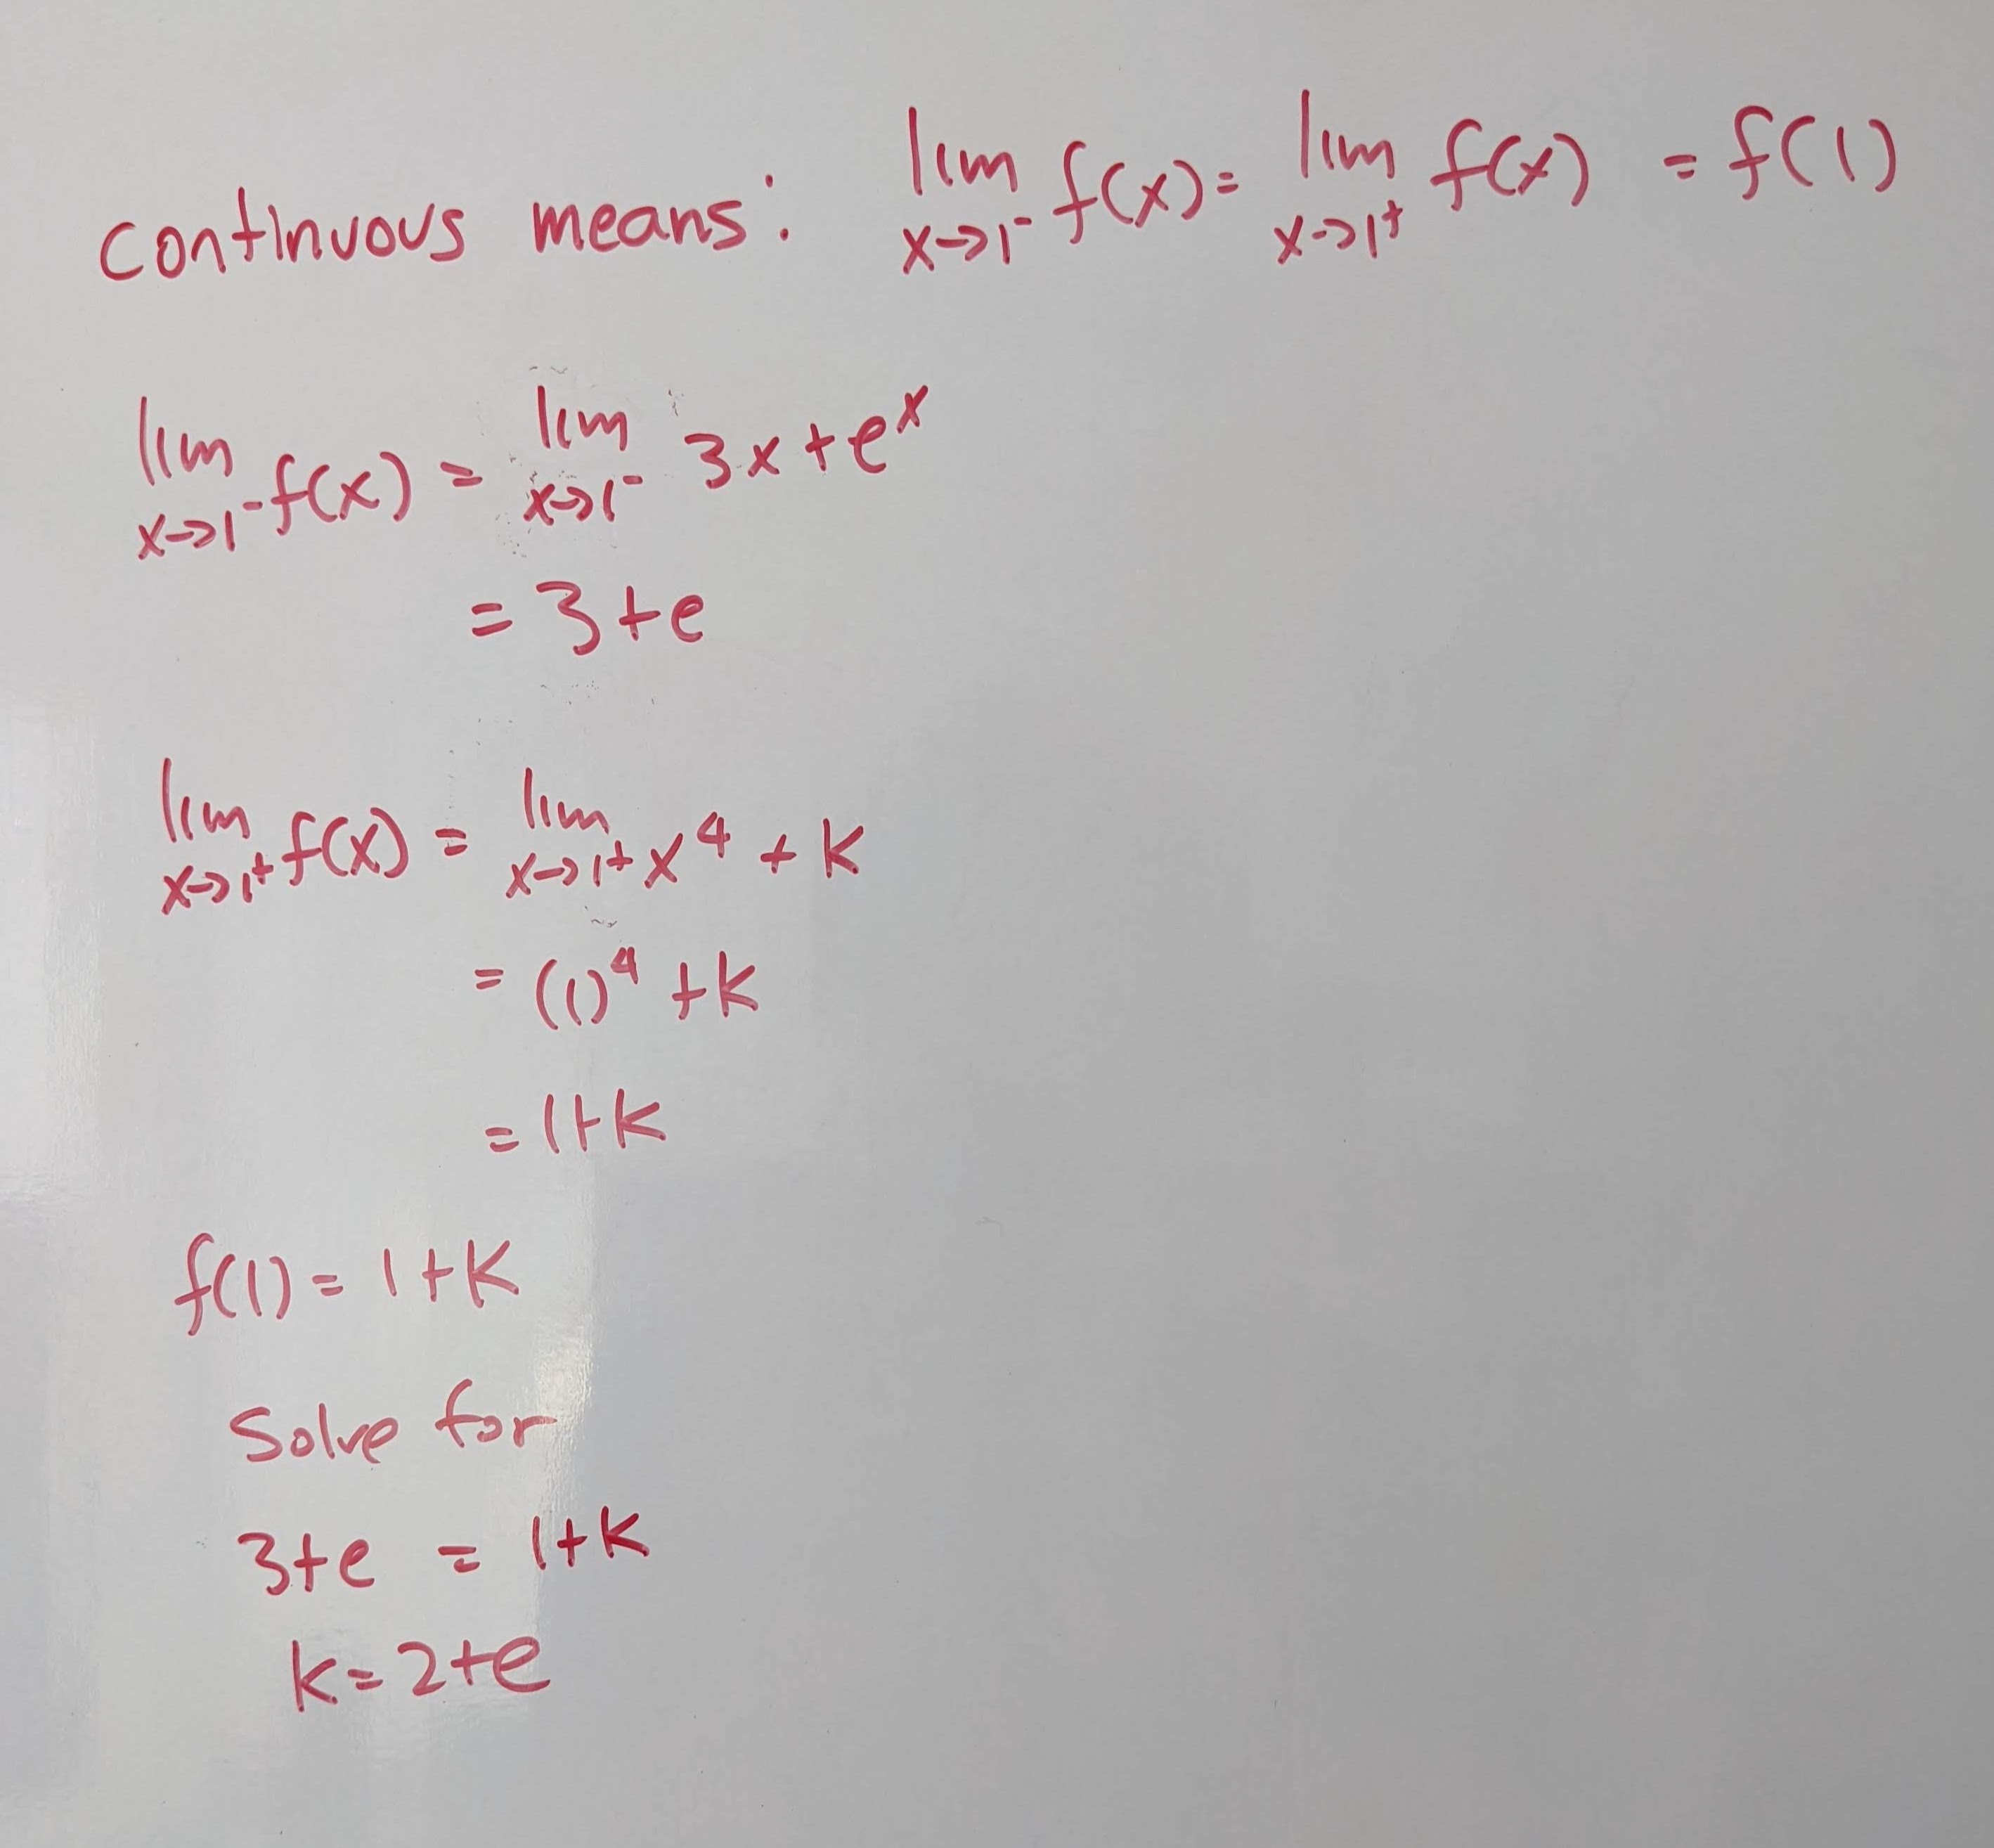 continuous means: lim x→1⁻ f(x) = lim x→1⁺ f(x) = f(1)
lim x→1⁻ f(x) = lim x→1⁻ 3x + eˣ
= 3 + e
lim x→1⁺ f(x) = lim x→1⁺ x⁴ + k
= (1)⁴ + k
= 1 + k
f(1) = 1 + k
Solve for
3 + e = 1 + k
k = 2 + e